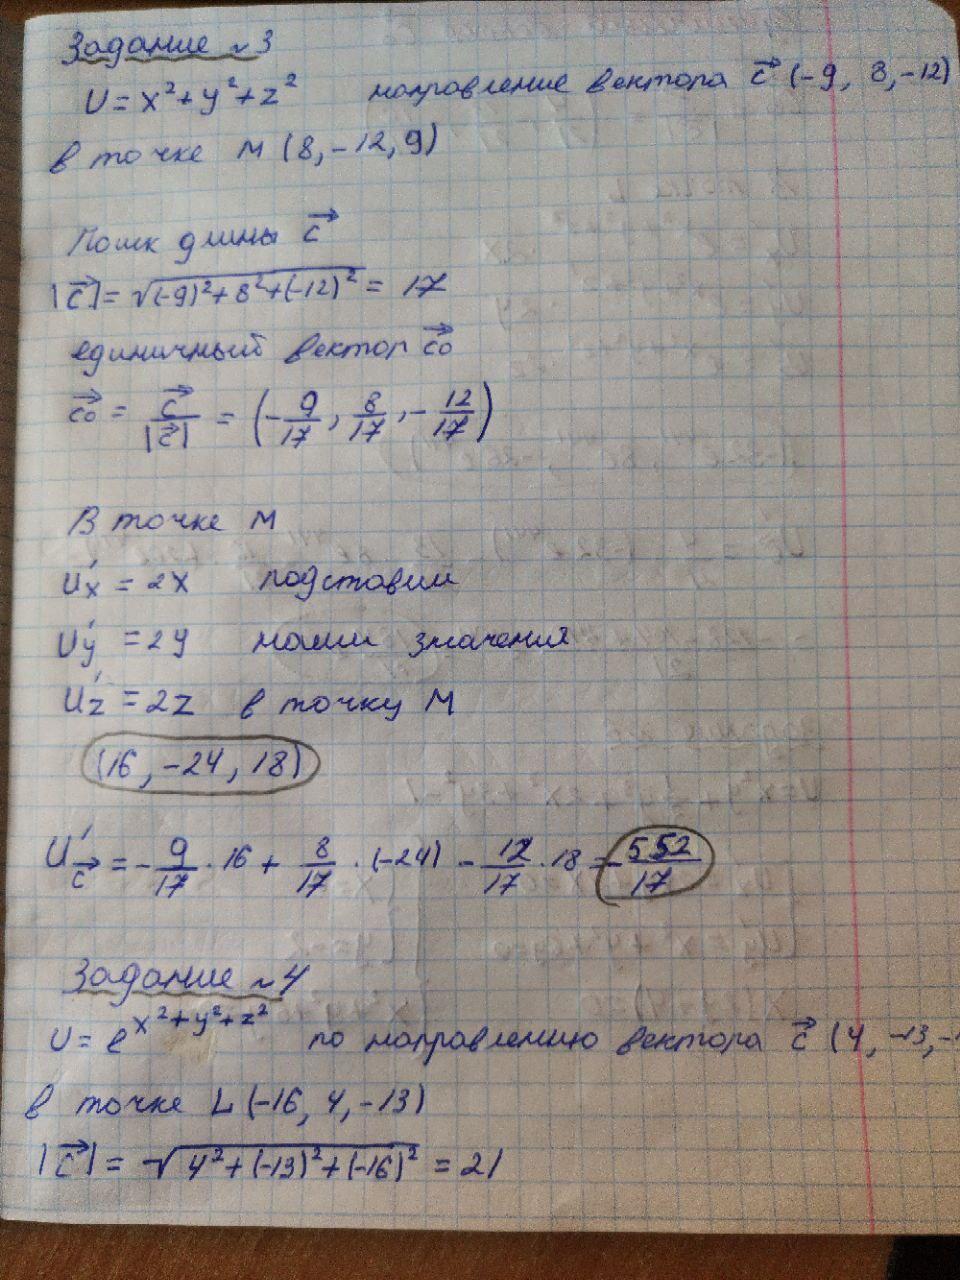 Задание №3
U = x² + y² + z² направление вектора c⃗ (-9, 8, -12)
в точке M (8, -12, 9)
Поиск длины c⃗
|c⃗| = √(-9)² + 8² + (-12)² = 17
единичный вектор c⃗₀
c⃗₀ = c⃗/|c⃗| = (-9/17, 8/17, -12/17)
В точке M
U'x = 2x подставим
U'y = 2y наши значения
U'z = 2z в точку M
(16, -24, 18)
U'c⃗ = -9/17 · 16 + 8/17 · (-24) - 12/17 · 18 = -552/17
Задание №4
U = e^(x² + y² + z²) по направлению вектора c⃗ (4, -13, -1
в точке L (-16, 4, -13)
|c⃗| = √4² + (-13)² + (-16)² = 21